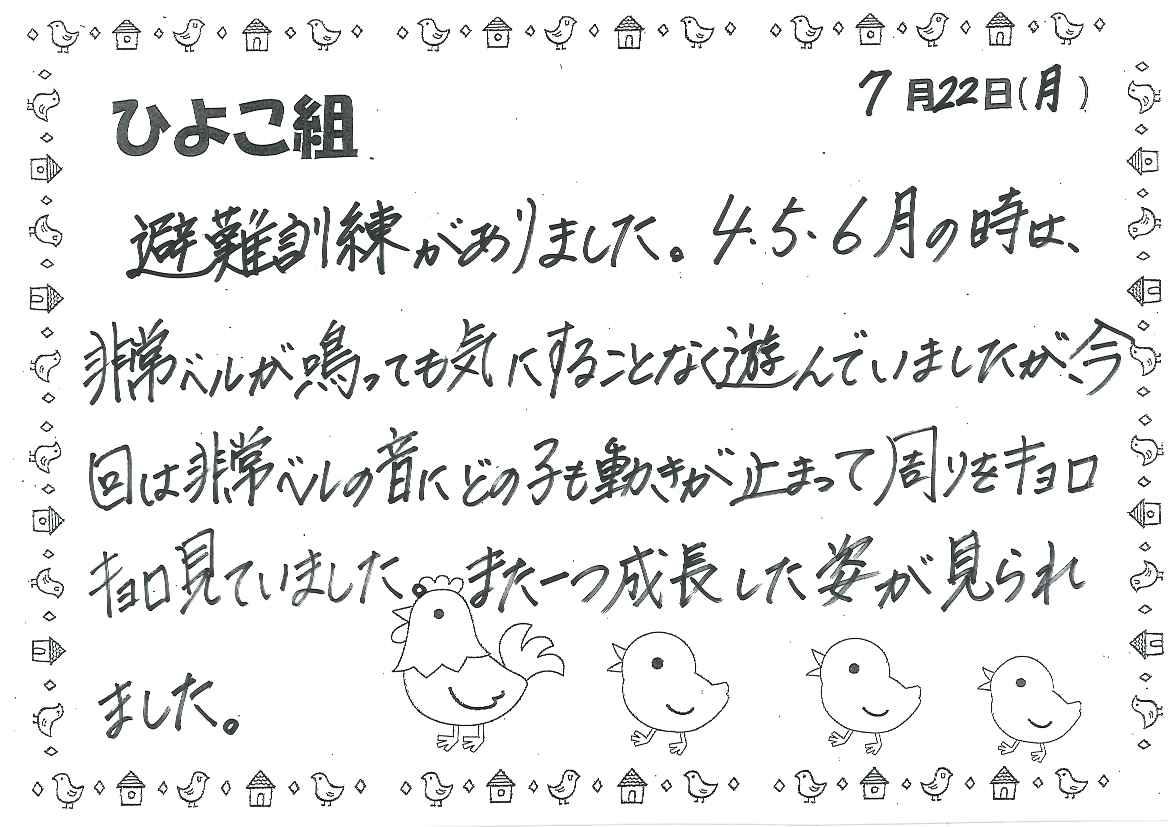 7月22日(月)
ひよこ組
避難訓練がありました。4.5.6月の時は、
非常ベルが鳴っても気にすることなく遊んでいましたが、今
回は非常ベルの音にどの子も動きが止まって周りをキョロ
キョロ見ていました。また一つ成長した姿が見られ
ました。